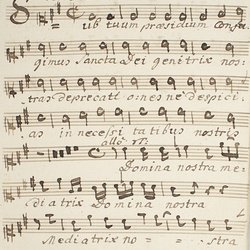 Sub tuum præsidium Confu
gimus Sancta Dei genitrix nos
tras deprecatl ones ne despici
as in necessi tatibus nostris
allo
Domina nostra me
diatrix Domina nostra
Mediatrix no = = stra